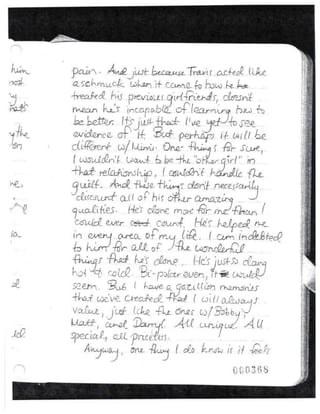 pain. And just because Travis acted like
a schmuck when it came to how he
treated his previous girlfriends, doesn't
mean he's incapable of learning how to
be better. It's just that I've yet to see
evidence of it. But perhaps it will be
different w/ Mimi. One thing's for sure,
I wouldn't want to be the "other girl" in
that relationship. I couldn't handle the
guilt. And these things don't necessarily
discount all of his other amazing
qualities. He's done more for me than I
could ever count. He's helped me
in every area of my life. I am indebted
to him for all of the wonderful
things that he's done. He's just so dang
hot & cold. Bi-polar even, it would
seem. But I have a gazillion memories
that we've created that I will always
value, just like the ones w/ Bobby,
Matt, and Darryl. All unique. All
special, all priceless.
Anyway, one thing I do know is it feels
000368
him
not
y the
on
he